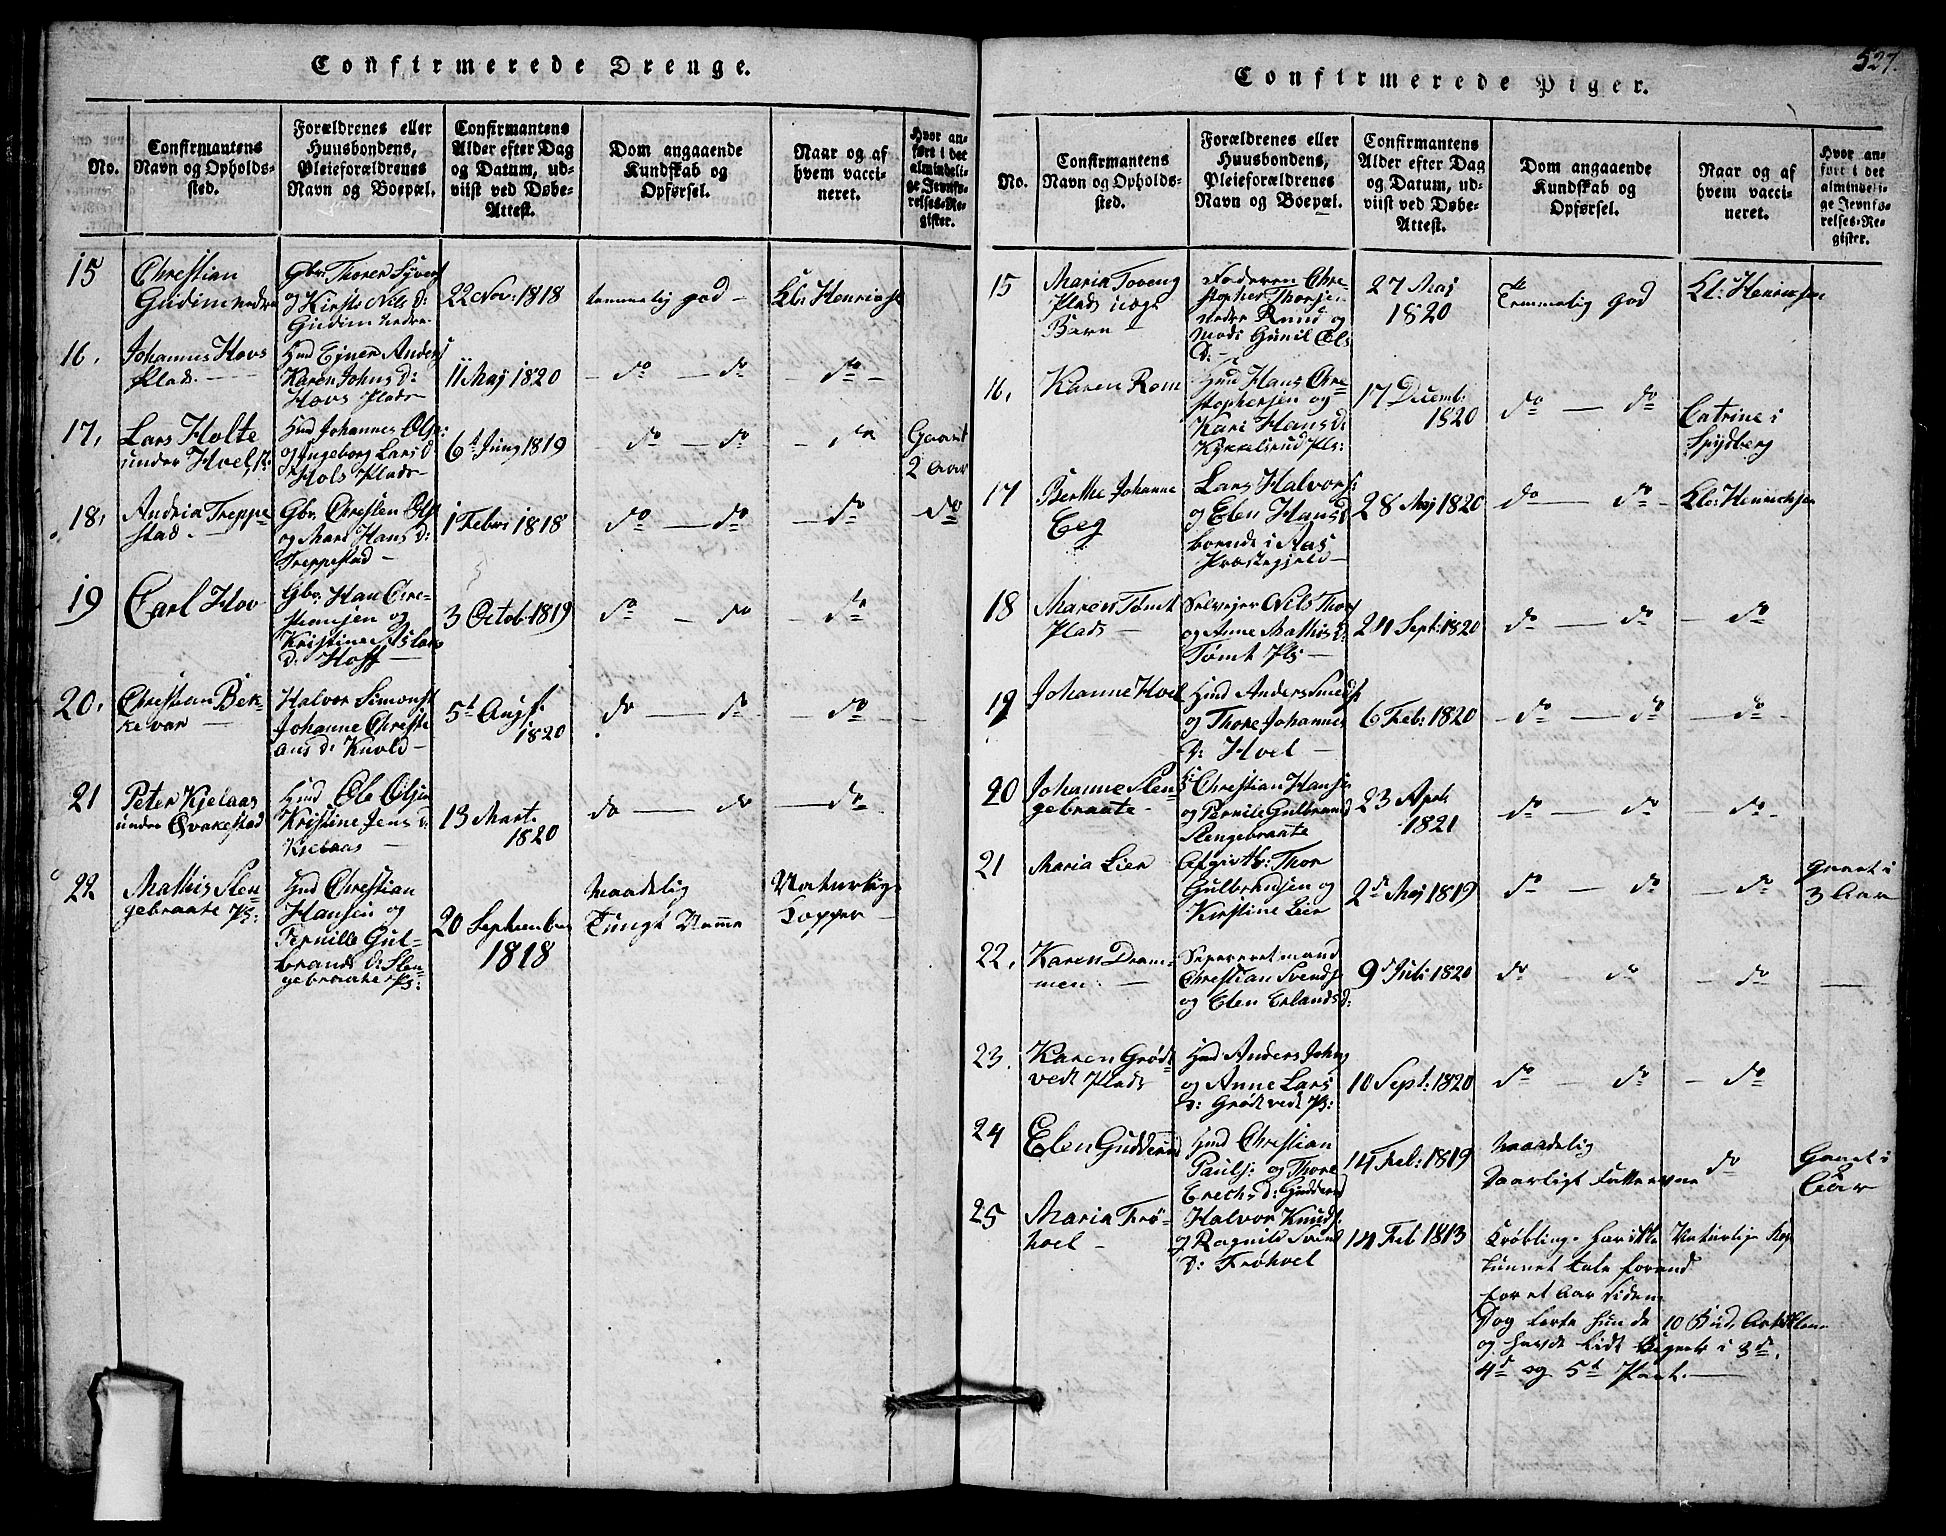 527.
Confirmerede Drenge.
No.
Confirmantens
Navn og Opholds-
sted.
Forældrenes eller
Huusbondens,
Pleieforældrenes
Navn og Boepæl.
Confirmantens
Alder efter Dag
og Datum, ud-
viist ved Døbe-
Attest.
Dom angaaende
Kundskab og
Opførsel.
Naar og af
hvem vacci-
neret.
Hvor an-
ført i det
almindeli-
ge Jevnfø-
relses-Re-
gister.
15
Christian
Gudim nedre
Gbr: Thorer Syvers
og Kirsti Nils d:
Gudim nedre
22 Nov: 1818
temmelig god —
Kl: Henrichs
16.
Johannes Hovs
Plads. —
Hmd Ejner Anders
Karen Johns d:
Hovs Plads —
11 Maj 1820
— do — do
— do —
17.
Lars Holte
under Hoel P:
Hmd Johannes Ols:
og Ingeborg Lars d
Hols Plads —
6t Juny 1819
do — do
— do
Gaaet
2 Aar
18.
Andrea Treppe-
stad. —
Gbr. Christen Ols
og Mari Hans d:
Treppestad —
1 Febr: 1818
do — do
— do
— do
19
Carl Hov
Gbr. Han Chre-
stiansen og
Kristine Aslacs
d: Hoff —
3 Octob: 1819
do — do
do
20.
Christian Bek-
kevar —
Halvor Simons
Johanne Christi-
ans d: Knold —
5t Augs:
1820
do — do
— do —
21
Peter Kjelaas
under Qvakestad
Hmd Ole Olsen
Kristine Jens d:
Kjelaas —
13 Mart.
1820
do — do
— do
22
Mathis Slen-
gebraate Ps:
Hmd Christian
Hansen og
Pernille Gul-
brands d: Slen-
gebraate Ps:
20 September
1818
Maadelig
Tungt Nemme
Naturlige
Kopper —
Confirmerede Piger.
No.
Confirmantens
Navn og Opholds-
sted.
Forældrenes eller
Huusbondens,
Pleieforældrenes
Navn og Boepæl.
Confirmantens
Alder efter Dag
og Datum, ud-
viist ved Døbe-
Attest.
Dom angaaende
Kundskab og
Opførsel.
Naar og af
hvem vacci-
neret.
Hvor an-
ført i det
almindeli-
ge Jevnfø-
relses-Re-
gister.
15
Maria Toveng
Plads uægt
Barn —
Faderen Chri-
stopher Thorsen
nedre Rmd og
Mod: Gunil Els
d: —
27 Maj
1820
Temmelig god
Kl: Henrichsen
16.
Karen Rom
Hmd Hans Chri-
stophersen og
Kari Hans d:
Kykkelsrud Pls:
17 Decemb:
1820
do — do
Catrine i
Spydberg
17
Berthe Johanne
Eeg
Lars Halvors:
og Elen Hans d
boende i Aas
Præstegjeld —
28 Maj 1820
do — do —
Kl: Henrichsen
18
Maren Tømt
Plads —
Selvejer Nils Thors
og Anne Mathis d:
Tømt Pls —
24 Sept: 1820
do — do
— do
19
Johanne Hoel
Hmd Anders Smeds
og Thore Johannes
d: Hoel —
6 Feb: 1820
— do — do
— do —
20
Johanne Slen-
gebraate —
Christian Hans:
og Pernille Gulbrand
Slengebraate
23 Apr:
1821
do — do
do —
21
Maria Lier
Thor
Gulbrandsen og
Kirstine Lier
2d Maj 1819
do — do
— do
Gaaet i
3 Aar
22.
Karen Dram-
men. —
Seperert mand
Christian Svends
og Elen Erlands d:
9d Jul: 1820
do — do
— do
—
23.
Karen Grødt-
vedt Plads
Hmd Anders Johns
og Anne Lars
d: Grødtvedt Ps:
10 Sept: 1820
do — do
— do
24
Elen Gudderud
Hmd Christian
Pauls: og Thore
Erechs d: Gudderud
14 Feb: 1819
Maadelig
Daarligt Fatteevne
do
Gaaet i
2
Aar
25
Maria Frø-
hoel —
Halvor Knuds:
og Ragnild Svend
d: Frøhoel
14 Feb 1813
Krøbling. har ikke
kunnet tale forend
for et Aar siden
Dog lerte hun de 10 Bud, Artiklene
og havde lidt Begreb i 3d,
4d og 5t Part. —
Naturlige Kop